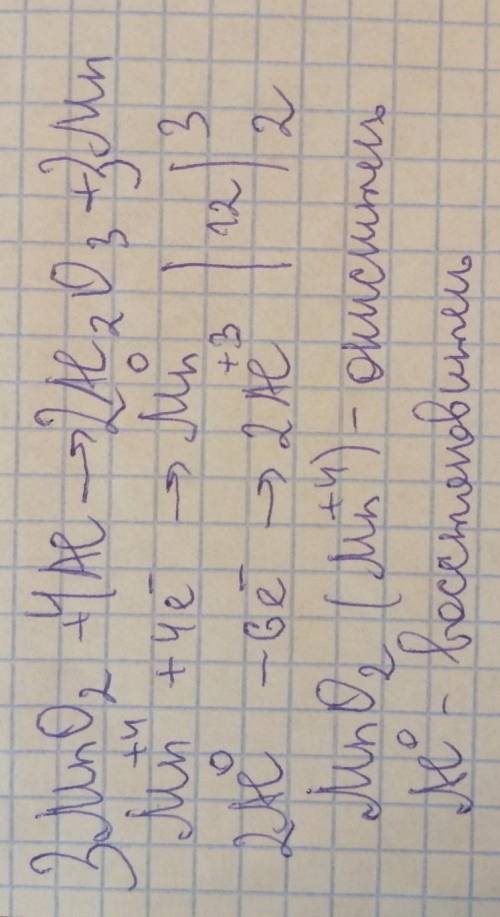 3MnO₂ + 4Al → 2Al₂O₃ + 3Mn
Mn⁺⁴ +4e⁻ → Mn⁰ | 12 | 3
2Al⁰ -6e⁻ → 2Al⁺³ | 12 | 2
MnO₂ (Mn⁺⁴) - окислитель
Al⁰ - восстановитель